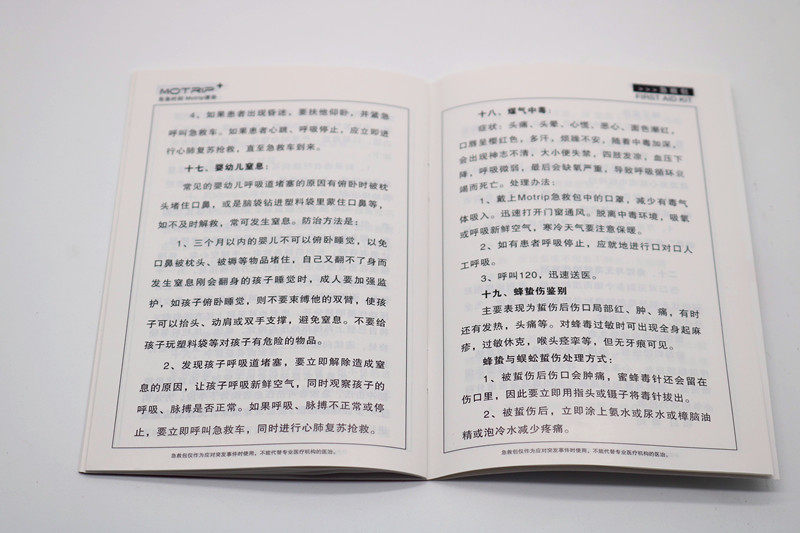 MOTRIP+
急救时刻 Motrip速救
4、如果患者出现昏迷，要扶他仰卧，并紧急
呼叫急救车。如果患者心跳、呼吸停止，应立即进
行心肺复苏抢救，直至急救车到来。
十七、婴幼儿窒息：
常见的婴幼儿呼吸道堵塞的原因有俯卧时被枕
头堵住口鼻，或是脑袋钻进塑料袋里蒙住口鼻等，
如不及时解救，常可发生窒息。防治方法是：
1、三个月以内的婴儿不可以俯卧睡觉，以免
口鼻被枕头、被褥等物品堵住，自己又翻不了身而
发生窒息刚会翻身的孩子睡觉时，成人要加强监
护，如孩子俯卧睡觉，则不要束缚他的双臂，使孩
子可以抬头、动肩或双手支撑，避免窒息。不要给
孩子玩塑料袋等对孩子有危险的物品。
2、发现孩子呼吸道堵塞，要立即解除造成窒
息的原因，让孩子呼吸新鲜空气，同时观察孩子的
呼吸、脉搏是否正常。如果呼吸、脉搏不正常或停
止，要立即呼叫急救车，同时进行心肺复苏抢救。
急救包仅作为应对突发事件时使用，不能代替专业医疗机构的医治。
>>>急救包
FIRST AID KIT
十八、煤气中毒：
症状：头痛、头晕、心慌、恶心、面色潮红，
口唇呈樱红色，多汗，烦躁不安，随着中毒加深，
会出现神志不清，大小便失禁，四肢发凉，血压下
降，呼吸微弱，最后会缺氧严重，导致呼吸循环衰
竭而死亡。处理办法：
1、戴上Motrip急救包中的口罩，减少有毒气
体吸入。迅速打开门窗通风。脱离中毒环境，吸氧
或呼吸新鲜空气，寒冷天气要注意保暖。
2、如有患者呼吸停止，应就地进行口对口人
工呼吸。
3、呼叫120，迅速送医。
十九、蜂蛰伤鉴别
主要表现为蜇伤后伤口局部红、肿、痛，有时
还有发热，头痛等。对蜂毒过敏时可出现全身起麻
疹，过敏休克，喉头痉挛等，但无牙痕可见。
蜂蛰与蜈蚣蜇伤处理方式：
1、被蜇伤后伤口会肿痛，蜜蜂毒针还会留在
伤口里，因此要立即用指头或镊子将毒针拔出。
2、被蜇伤后，立即涂上氨水或尿水或樟脑油
精或泡冷水减少疼痛。
急救包仅作为应对突发事件时使用，不能代替专业医疗机构的医治。